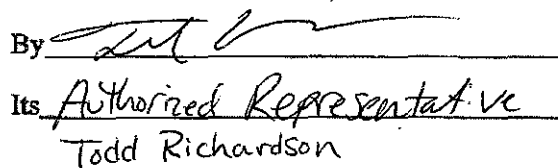 By
Its Authorized Representative
Todd Richardson